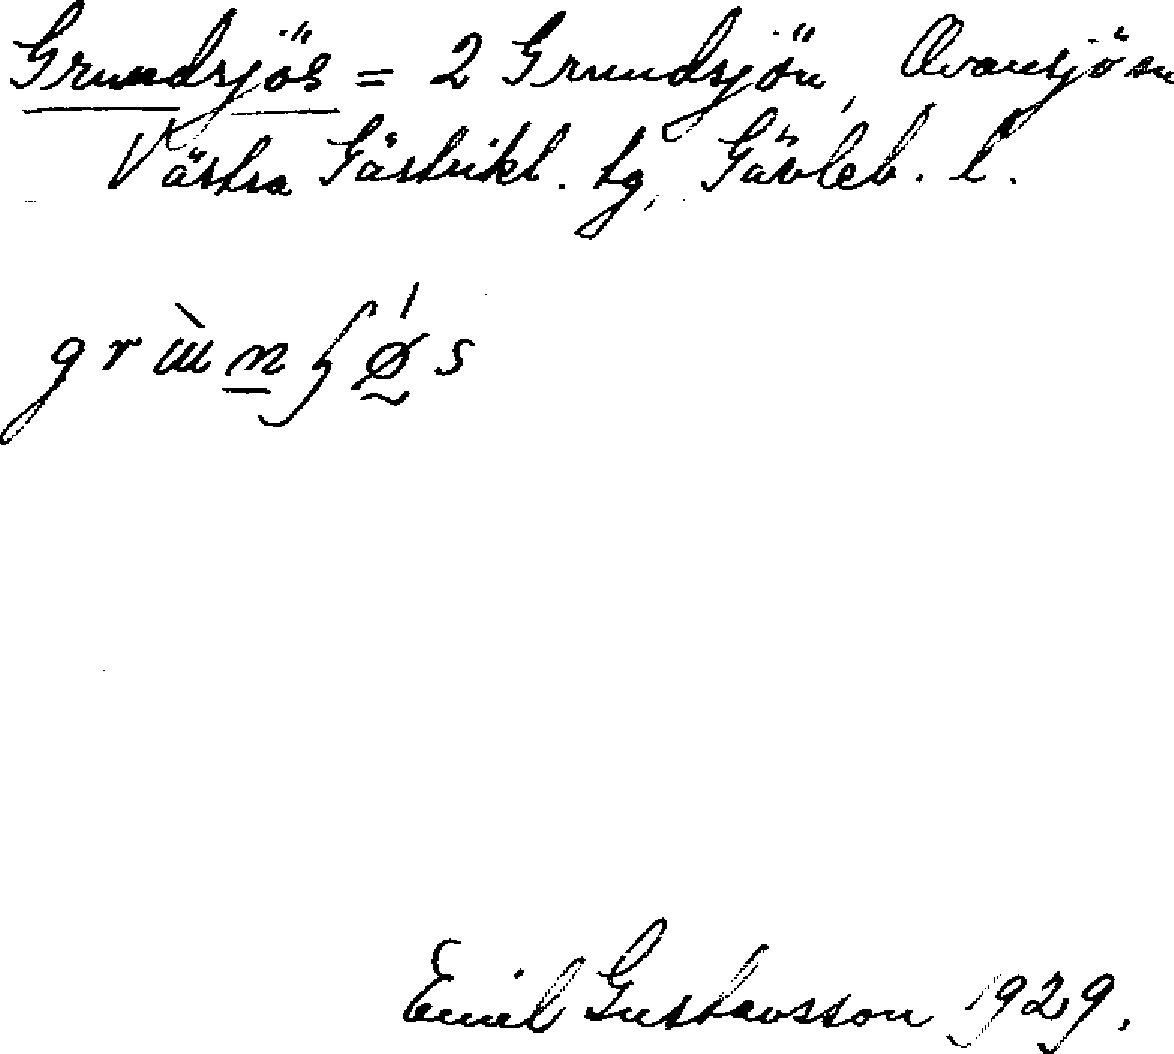 Grundsjös = 2 Grundsjön, Ovansjö sn
Västra Gästrikl. tg, Gävleb. l.
grɯ̀nʃǿs
Emil Gustavsson 1929.